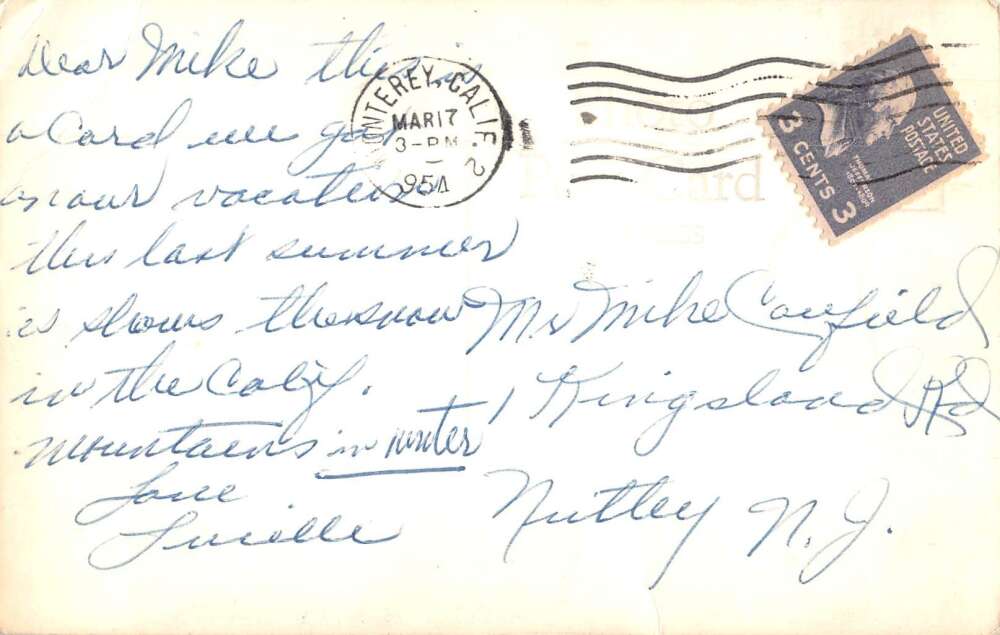 Dear Mike this is
a card we got
on our vacation
this last summer
it shows the snow
in the Calif.
mountains in winter
Love
Lucille
MONTEREY, CALIF. 2
MAR 17
3-PM
1954
Photo
Post Card
UNITED
STATES
POSTAGE
3 CENTS 3
THOMAS
JEFFERSON
Mr Mike Canfield
1 Kingsland Rd
Nutley N. J.